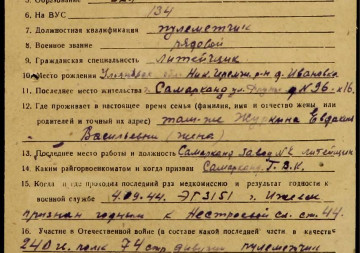 6. На ВУС 134
7. Должностная квалификация пулеметчик
8. Военное звание рядовой
9. Гражданская специальность литейщик
10. Место рождения обл. Ник. р-н д. Ивановка
11. Последнее место жительства г. Самарканд ул. д N 36 - к 16
12. Где проживает в настоящее время семья (фамилия, имя и отчество жены или
родителей и точный их адрес) там-же Евдакия
Васильевна (жена)
13. Последнее место работы и должность Самарканд завод литейщик
14. Каким райгорвоенкоматом и когда призван Самаркан. Г.В.К.
15. Когда и где проходил последний раз медкомиссию и результат годности к
военной службе 4.09.44. ЭГ 3151 г. Ижевск
признан годным к нестроевой сл. ст. 44.
16. Участие в Отечественной войне (в составе какой последней части и в качестве
240 гв. полк 74 стр. дивизии пулеметчик